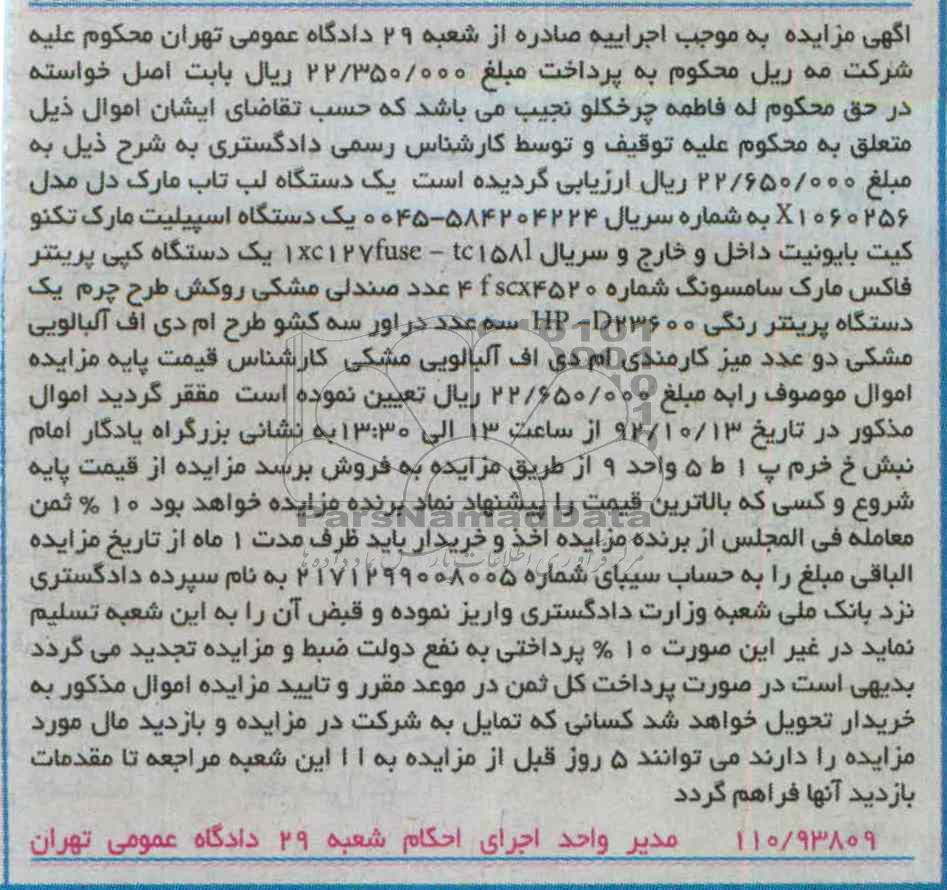 اگهی مزایده به موجب اجراییه صادره از شعبه ۲۹ دادگاه عمومی تهران محکوم علیه
شرکت مه ریل محکوم به پرداخت مبلغ ۲۲/۳۵۰/۰۰۰ ریال بابت اصل خواسته
در حق محکوم له فاطمه چرخکلو نجیب می باشد که حسب تقاضای ایشان اموال ذیل
متعلق به محکوم علیه توقیف و توسط کارشناس رسمی دادگستری به شرح ذیل به
مبلغ ۲۲/۶۵۰/۰۰۰ ریال ارزیابی گردیده است یک دستگاه لب تاب مارک دل مدل
X۱۰۶۰۲۵۶ به شماره سریال ۵۸۴۲۰۴۲۲۴-۰۰۴۵ یک دستگاه اسپیلیت مارک تکنو
کیت بایونیت داخل و خارج و سریال ۱xc۱۲۷fuse - tc۱۵۸l یک دستگاه کپی پرینتر
فاکس مارک سامسونگ شماره f scx۴۵۲۰ ۴ عدد صندلی مشکی روکش طرح چرم یک
دستگاه پرینتر رنگی HP - D۲۳۶۰۰ سه عدد دراور سه کشو طرح ام دی اف آلبالویی
مشکی دو عدد میز کارمندی ام دی اف آلبالویی مشکی کارشناس قیمت پایه مزایده
اموال موصوف رابه مبلغ ۲۲/۶۵۰/۰۰۰ ریال تعیین نموده است مققر گردید اموال
مذکور در تاریخ ۹۲/۱۰/۱۳ از ساعت ۱۳ الی ۱۳:۳۰به نشانی بزرگراه یادگار امام
نبش خ خرم پ ۱ ط ۵ واحد ۹ از طریق مزایده به فروش برسد مزایده از قیمت پایه
شروع و کسی که بالاترین قیمت را پیشنهاد نماد برنده مزایده خواهد بود ۱۰ % ثمن
معامله فی المجلس از برنده مزایده اخذ و خریدار باید ظرف مدت ۱ ماه از تاریخ مزایده
الباقی مبلغ را به حساب سیبای شماره ۲۱۷۱۲۹۹۰۰۸۰۰۵ به نام سپرده دادگستری
نزد بانک ملی شعبه وزارت دادگستری واریز نموده و قبض آن را به این شعبه تسلیم
نماید در غیر این صورت ۱۰ % پرداختی به نفع دولت ضبط و مزایده تجدید می گردد
بدیهی است در صورت پرداخت کل ثمن در موعد مقرر و تایید مزایده اموال مذکور به
خریدار تحویل خواهد شد کسانی که تمایل به شرکت در مزایده و بازدید مال مورد
مزایده را دارند می توانند ۵ روز قبل از مزایده به ا ا این شعبه مراجعه تا مقدمات
بازدید آنها فراهم گردد
۱۱۰/۹۳۸۰۹ مدیر واحد اجرای احکام شعبه ۲۹ دادگاه عمومی تهران
ParsNamadData